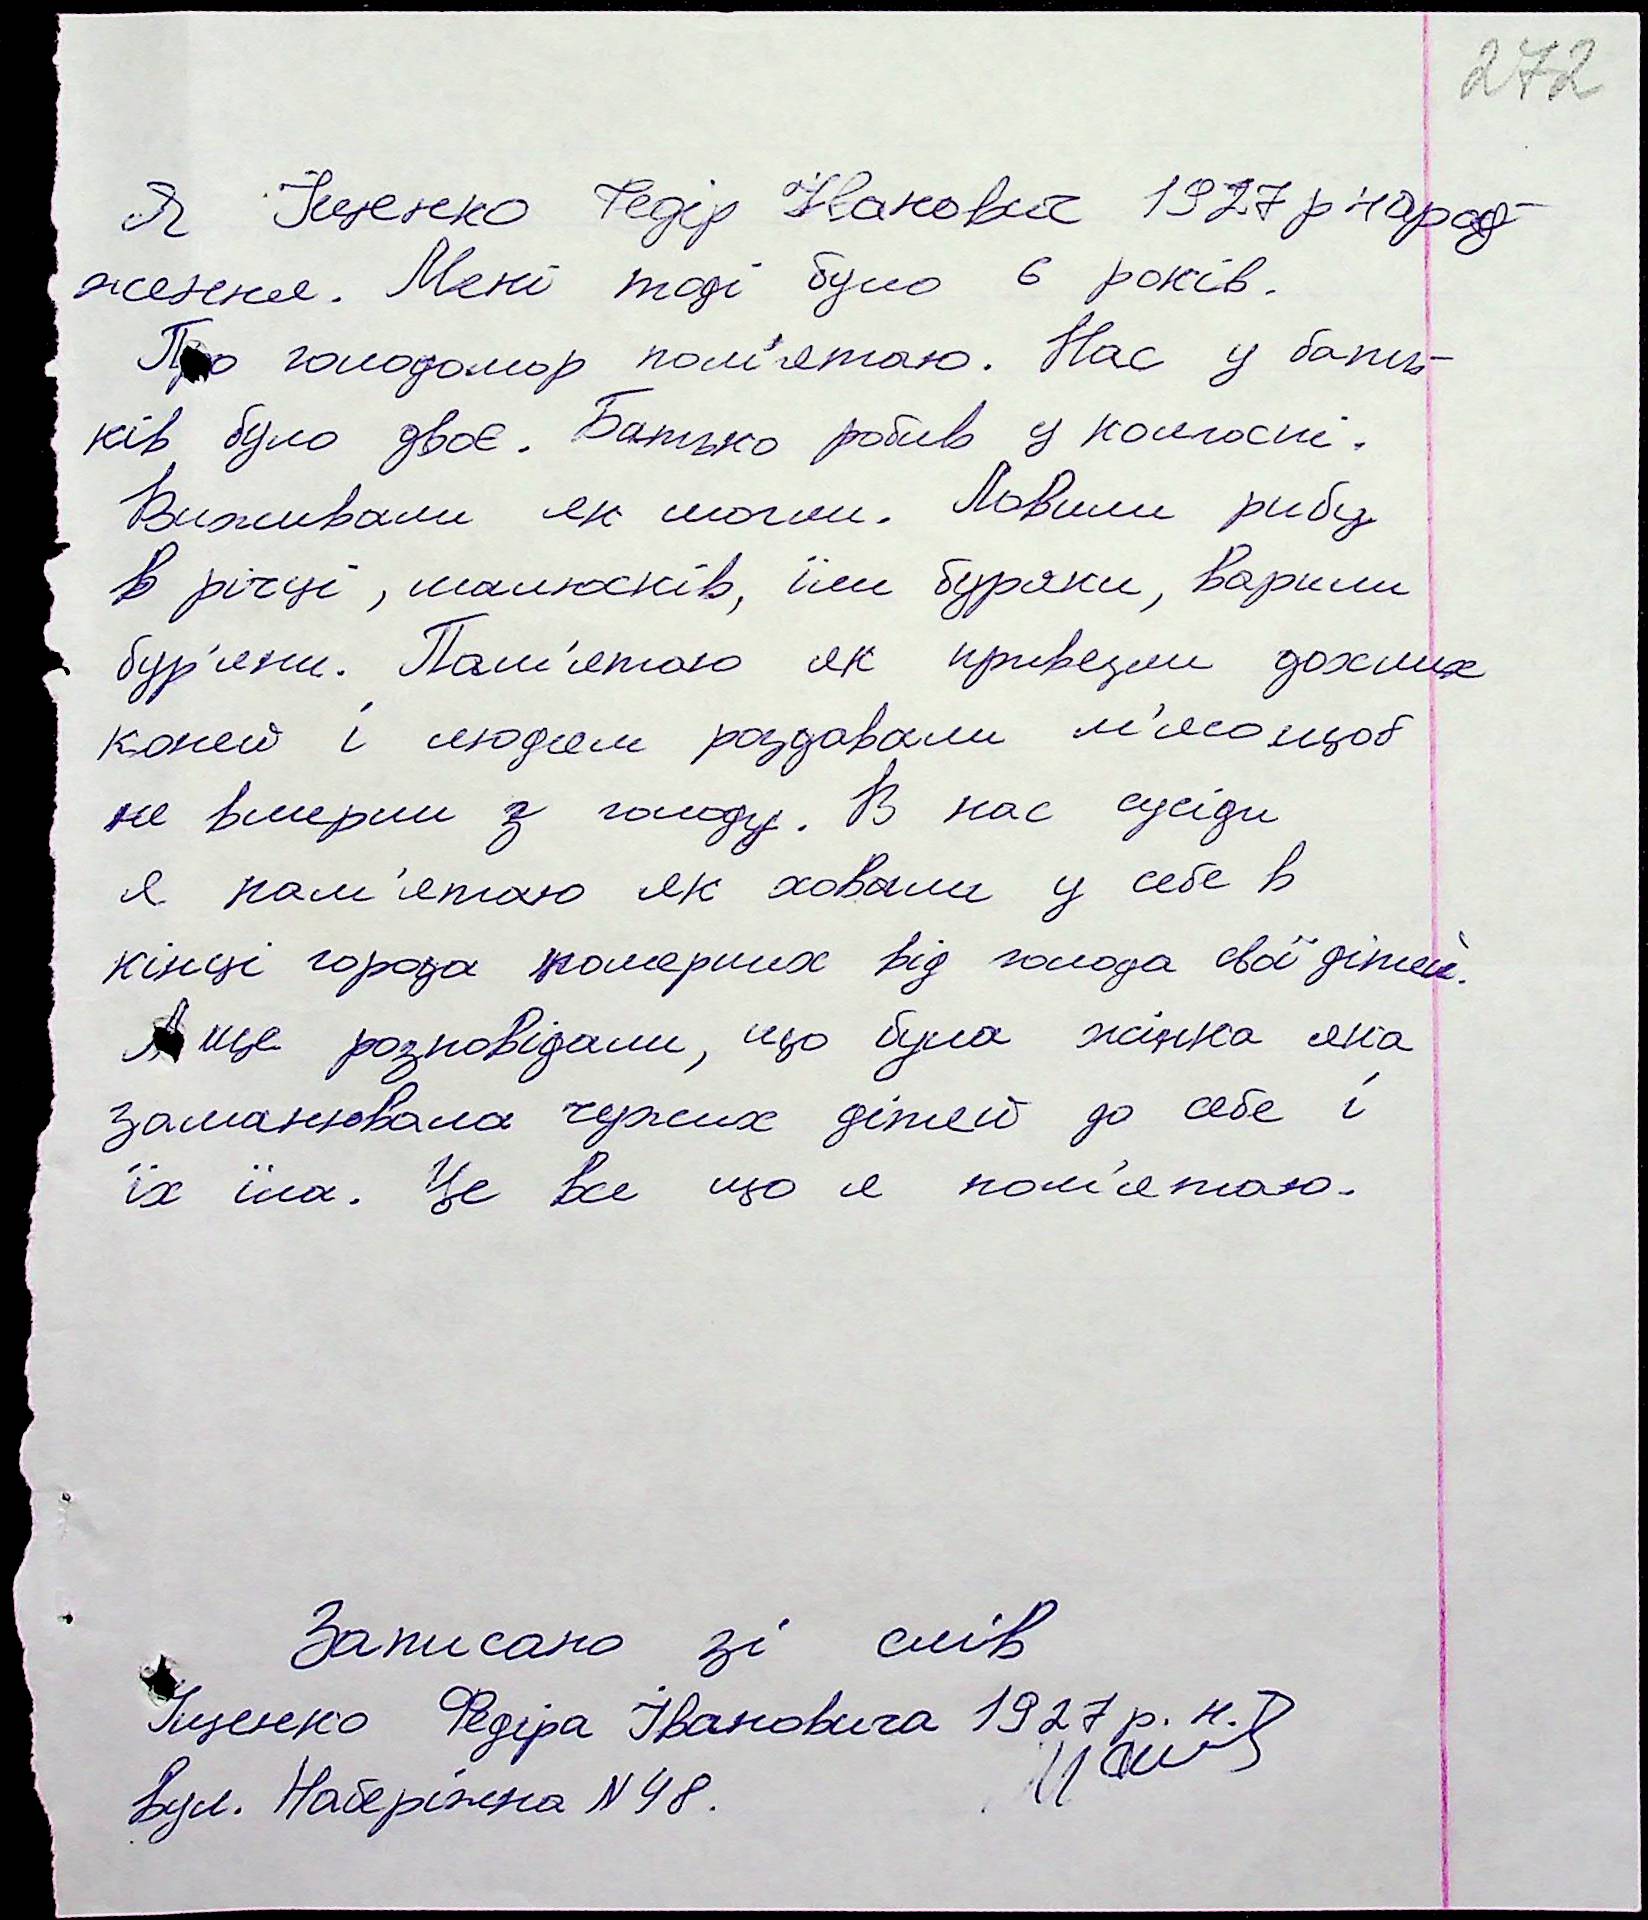 272
Я Іщенко Федір Іванович 1927 р народ-
ження. Мені тоді було 6 років.
Про голодомор пам'ятаю. Нас у бать-
ків було двоє. Батько робив у колгоспі.
Виживали як могли. Ловили рибу
в річці, малюсків, їли буряки, варили
бур'яни. Пам'ятаю як привезли дохлих
коней і людям роздавали м'ясо щоб
не вмерли з голоду. В нас сусіди
я пам'ятаю як ховали у себе в
кінці города померших від голода свої дітей.
А ще розповідали, що була жінка яка
заманювала чужих дітей до себе і
їх їла. Це все що я пам'ятаю.
Записано зі слів
Іщенко Федіра Івановича 1927 р. н.
вул. Наберіжна N 48.